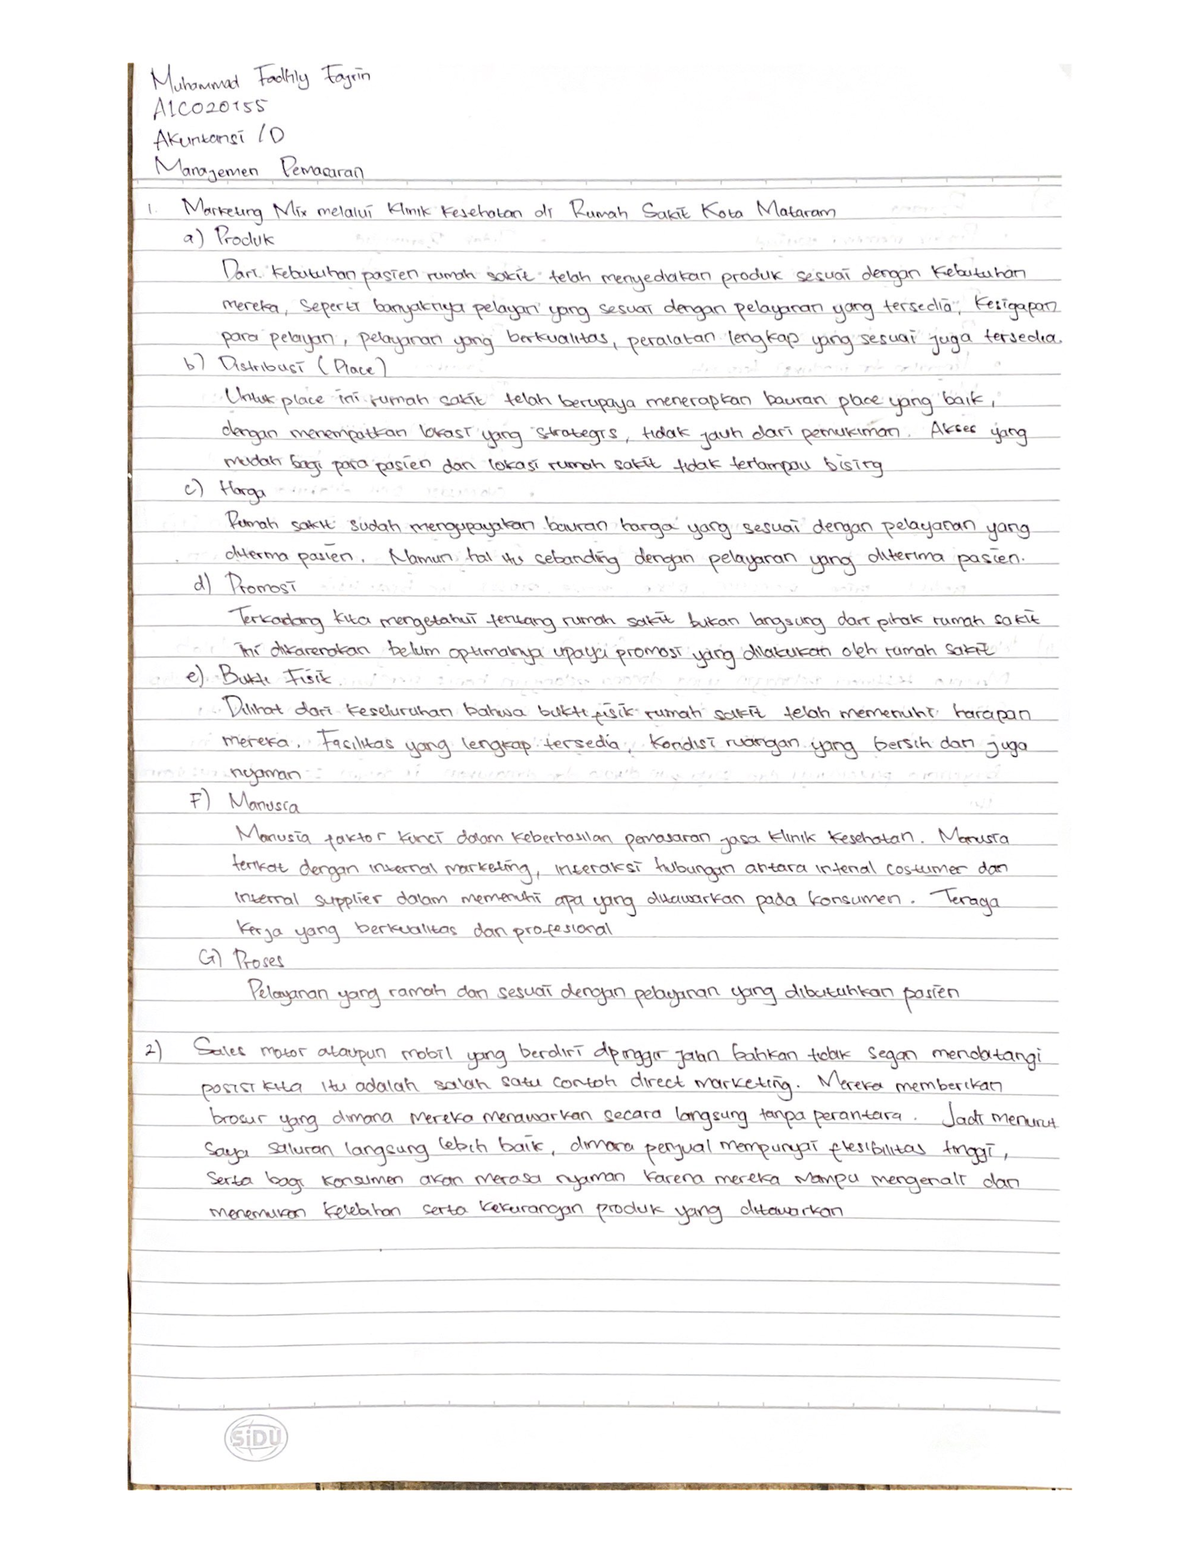 Muhammad Fadhly Fajrin
A1C020155
Akuntansi /D
Managemen Pemasaran
1. Marketing Mix melalui Klinik Kesehatan di Rumah Sakit Kota Mataram
a) Produk
Dari kebutuhan pasien rumah sakit telah menyediakan produk sesuai dengan kebutuhan
mereka, seperti banyaknya pelayan yang sesuai dengan pelayanan yang tersedia, kesigapan
para pelayan, pelayanan yang berkualitas, peralatan lengkap yang sesuai juga tersedia.
b) Distribusi (Place)
Untuk place ini rumah sakit telah berupaya menerapkan bauran place yang baik,
dengan menempatkan lokasi yang strategis, tidak jauh dari pemukiman. Akses yang
mudah bagi para pasien dan lokasi rumah sakit tidak terlampau bising
c) Harga
Rumah sakit sudah mengupayakan bauran harga yang sesuai dengan pelayanan yang
diterma pasien. Namun hal itu sebanding dengan pelayanan yang diterima pasien.
d) Promosi
Terkadang kita mengetahui tentang rumah sakit bukan langsung dari pihak rumah sakit
ini dikarenakan belum optimalnya upaya promosi yang dilakukan oleh rumah sakit
e) Bukti Fisik
Dilihat dari keseluruhan bahwa bukti fisik rumah sakit telah memenuhi harapan
mereka. Fasilitas yang lengkap tersedia, kondisi ruangan yang bersih dan juga
nyaman
F) Manusia
Manusia faktor kunci dalam keberhasilan pemasaran jasa klinik kesehatan. Manusia
terikat dengan internal marketing, interaksi hubungan antara intenal costumer dan
internal supplier dalam memenuhi apa yang ditawarkan pada konsumen. Tenaga
kerja yang berkualitas dan profesional
G) Proses
Pelayanan yang ramah dan sesuai dengan pelayanan yang dibutuhkan pasien
2) Sales motor ataupun mobil yang berdiri dipinggir jalan bahkan tidak segan mendatangi
posisi kita itu adalah salah satu contoh direct marketing. Mereka memberikan
brosur yang dimana mereka menawarkan secara langsung tanpa perantara. Jadi menurut
saya saluran langsung lebih baik, dimana penjual mempunyai flesibilitas tinggi,
serta bagi konsumen akan merasa nyaman karena mereka mampu mengenali dan
menemukan kelebihan serta kekurangan produk yang ditawarkan
SiDU